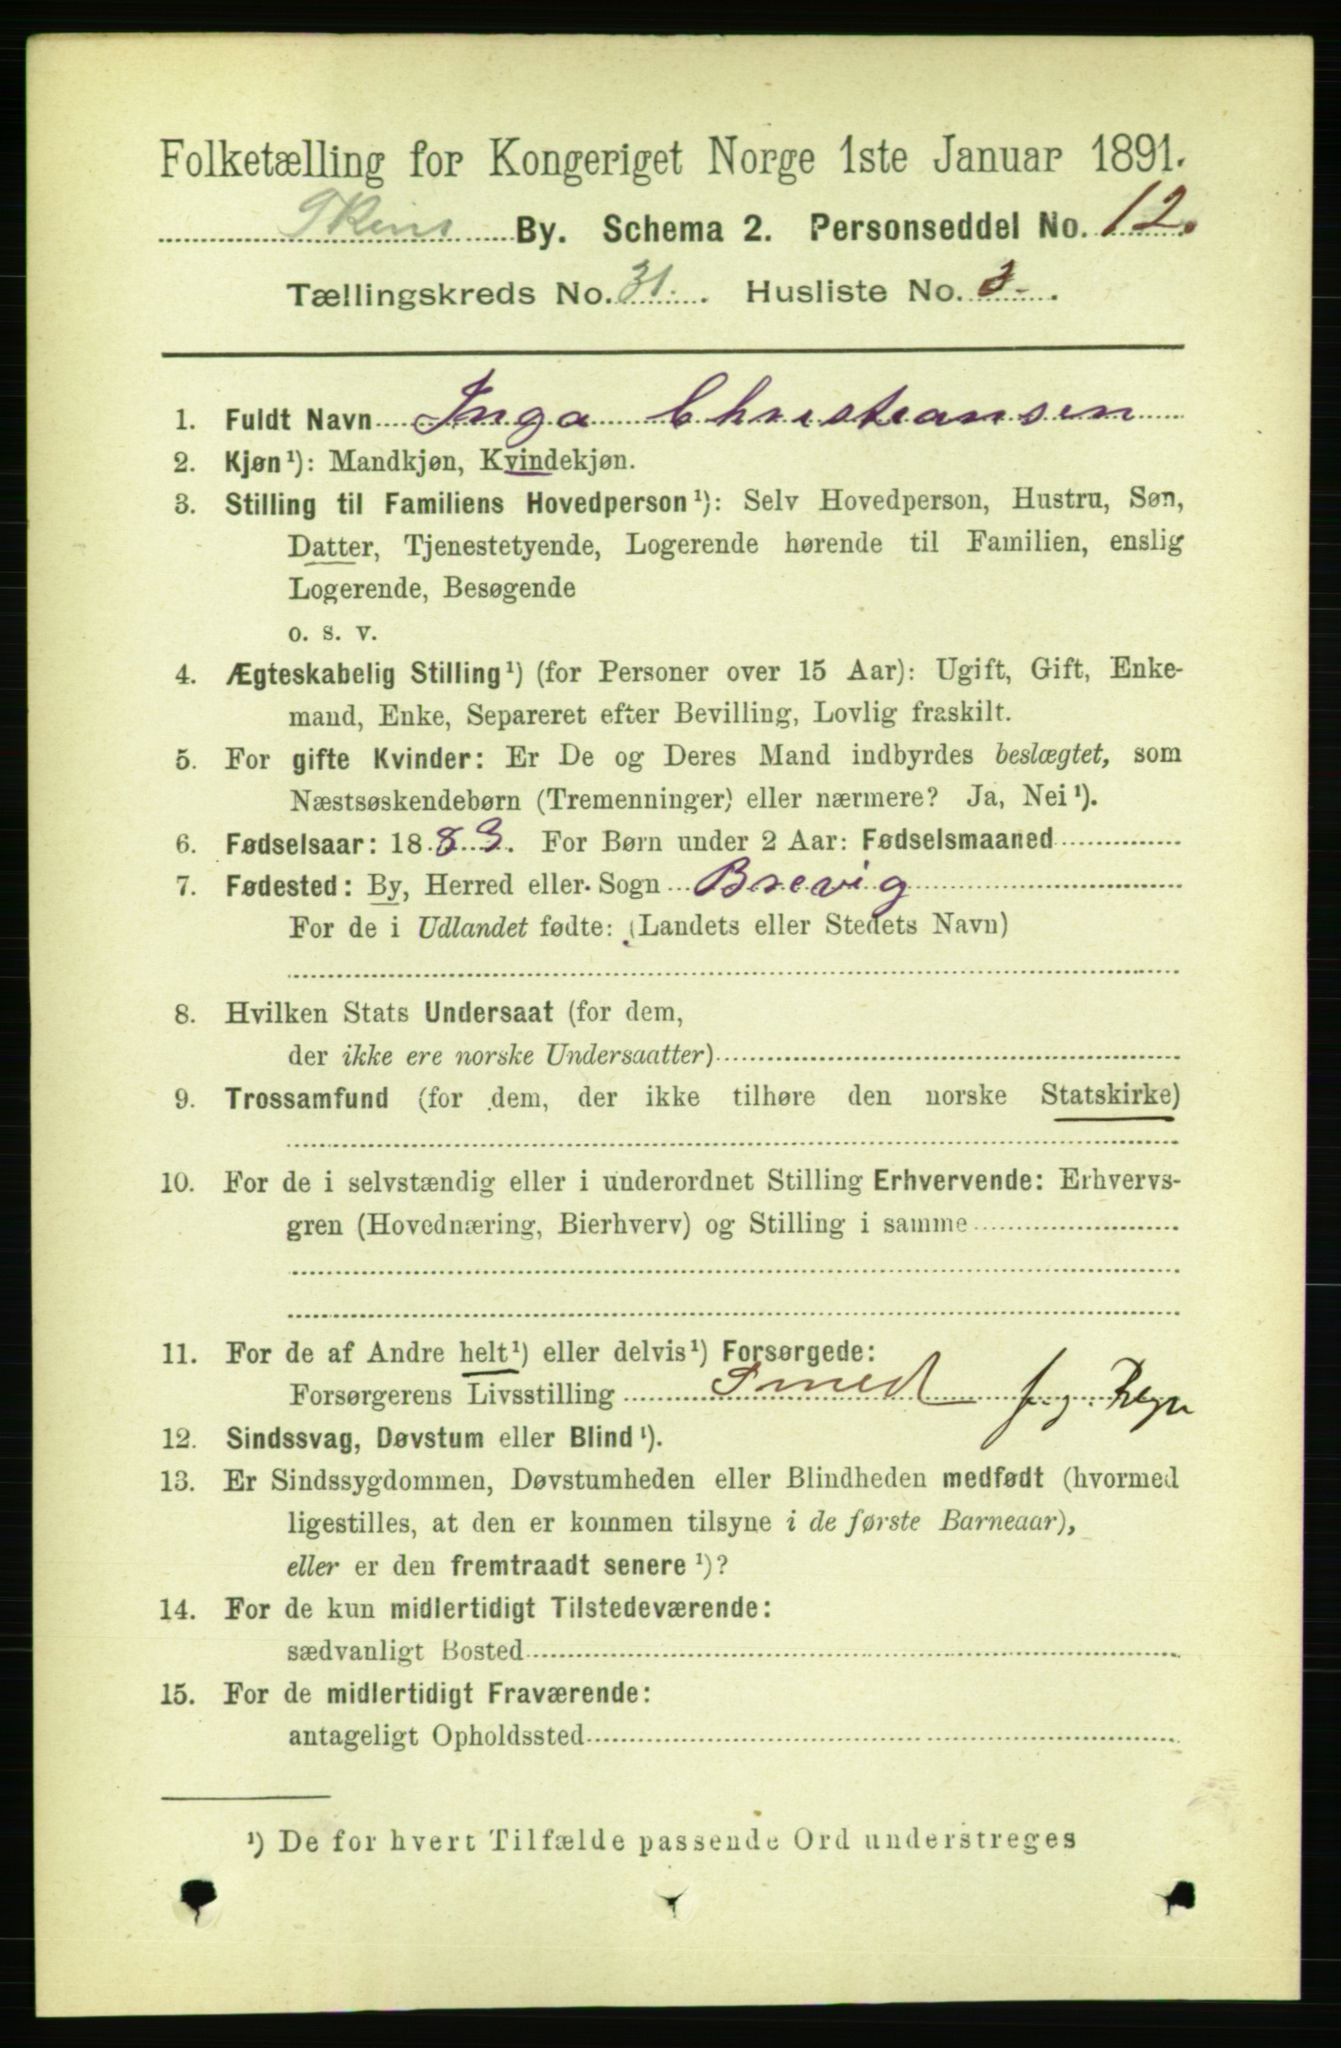 Folketælling for Kongeriget Norge 1ste Januar 1891.
Skiens By. Schema 2. Personseddel No. 12.
Tællingskreds No. 31. Husliste No. 3.
1. Fuldt Navn Inga Christiansen
2. Kjøn¹): Mandkjøn, Kvindekjøn.
3. Stilling til Familiens Hovedperson¹): Selv Hovedperson, Hustru, Søn,
Datter, Tjenestetyende, Logerende hørende til Familien, enslig
Logerende, Besøgende
o. s. v.
4. Ægteskabelig Stilling¹) (for Personer over 15 Aar): Ugift, Gift, Enke-
mand, Enke, Separeret efter Bevilling, Lovlig fraskilt.
5. For gifte Kvinder: Er De og Deres Mand indbyrdes beslægtet, som
Næstsøskendebørn (Tremenninger) eller nærmere? Ja, Nei¹).
6. Fødselsaar: 1883. For Børn under 2 Aar: Fødselsmaaned
7. Fødested: By, Herred eller Sogn Brevig
For de i Udlandet fødte: (Landets eller Stedets Navn)
8. Hvilken Stats Undersaat (for dem,
der ikke ere norske Undersaatter)
9. Trossamfund (for dem, der ikke tilhøre den norske Statskirke)
10. For de i selvstændig eller i underordnet Stilling Erhvervende: Erhvervs-
gren (Hovednæring, Bierhverv) og Stilling i samme
11. For de af Andre helt¹) eller delvis¹) Forsørgede:
Forsørgerens Livsstilling Smed
12. Sindssvag, Døvstum eller Blind¹).
13. Er Sindssygdommen, Døvstumheden eller Blindheden medfødt (hvormed
ligestilles, at den er kommen tilsyne i de første Barneaar),
eller er den fremtraadt senere¹)?
14. For de kun midlertidigt Tilstedeværende:
sædvanligt Bosted
15. For de midlertidigt Fraværende:
antageligt Opholdssted
¹) De for hvert Tilfælde passende Ord understreges